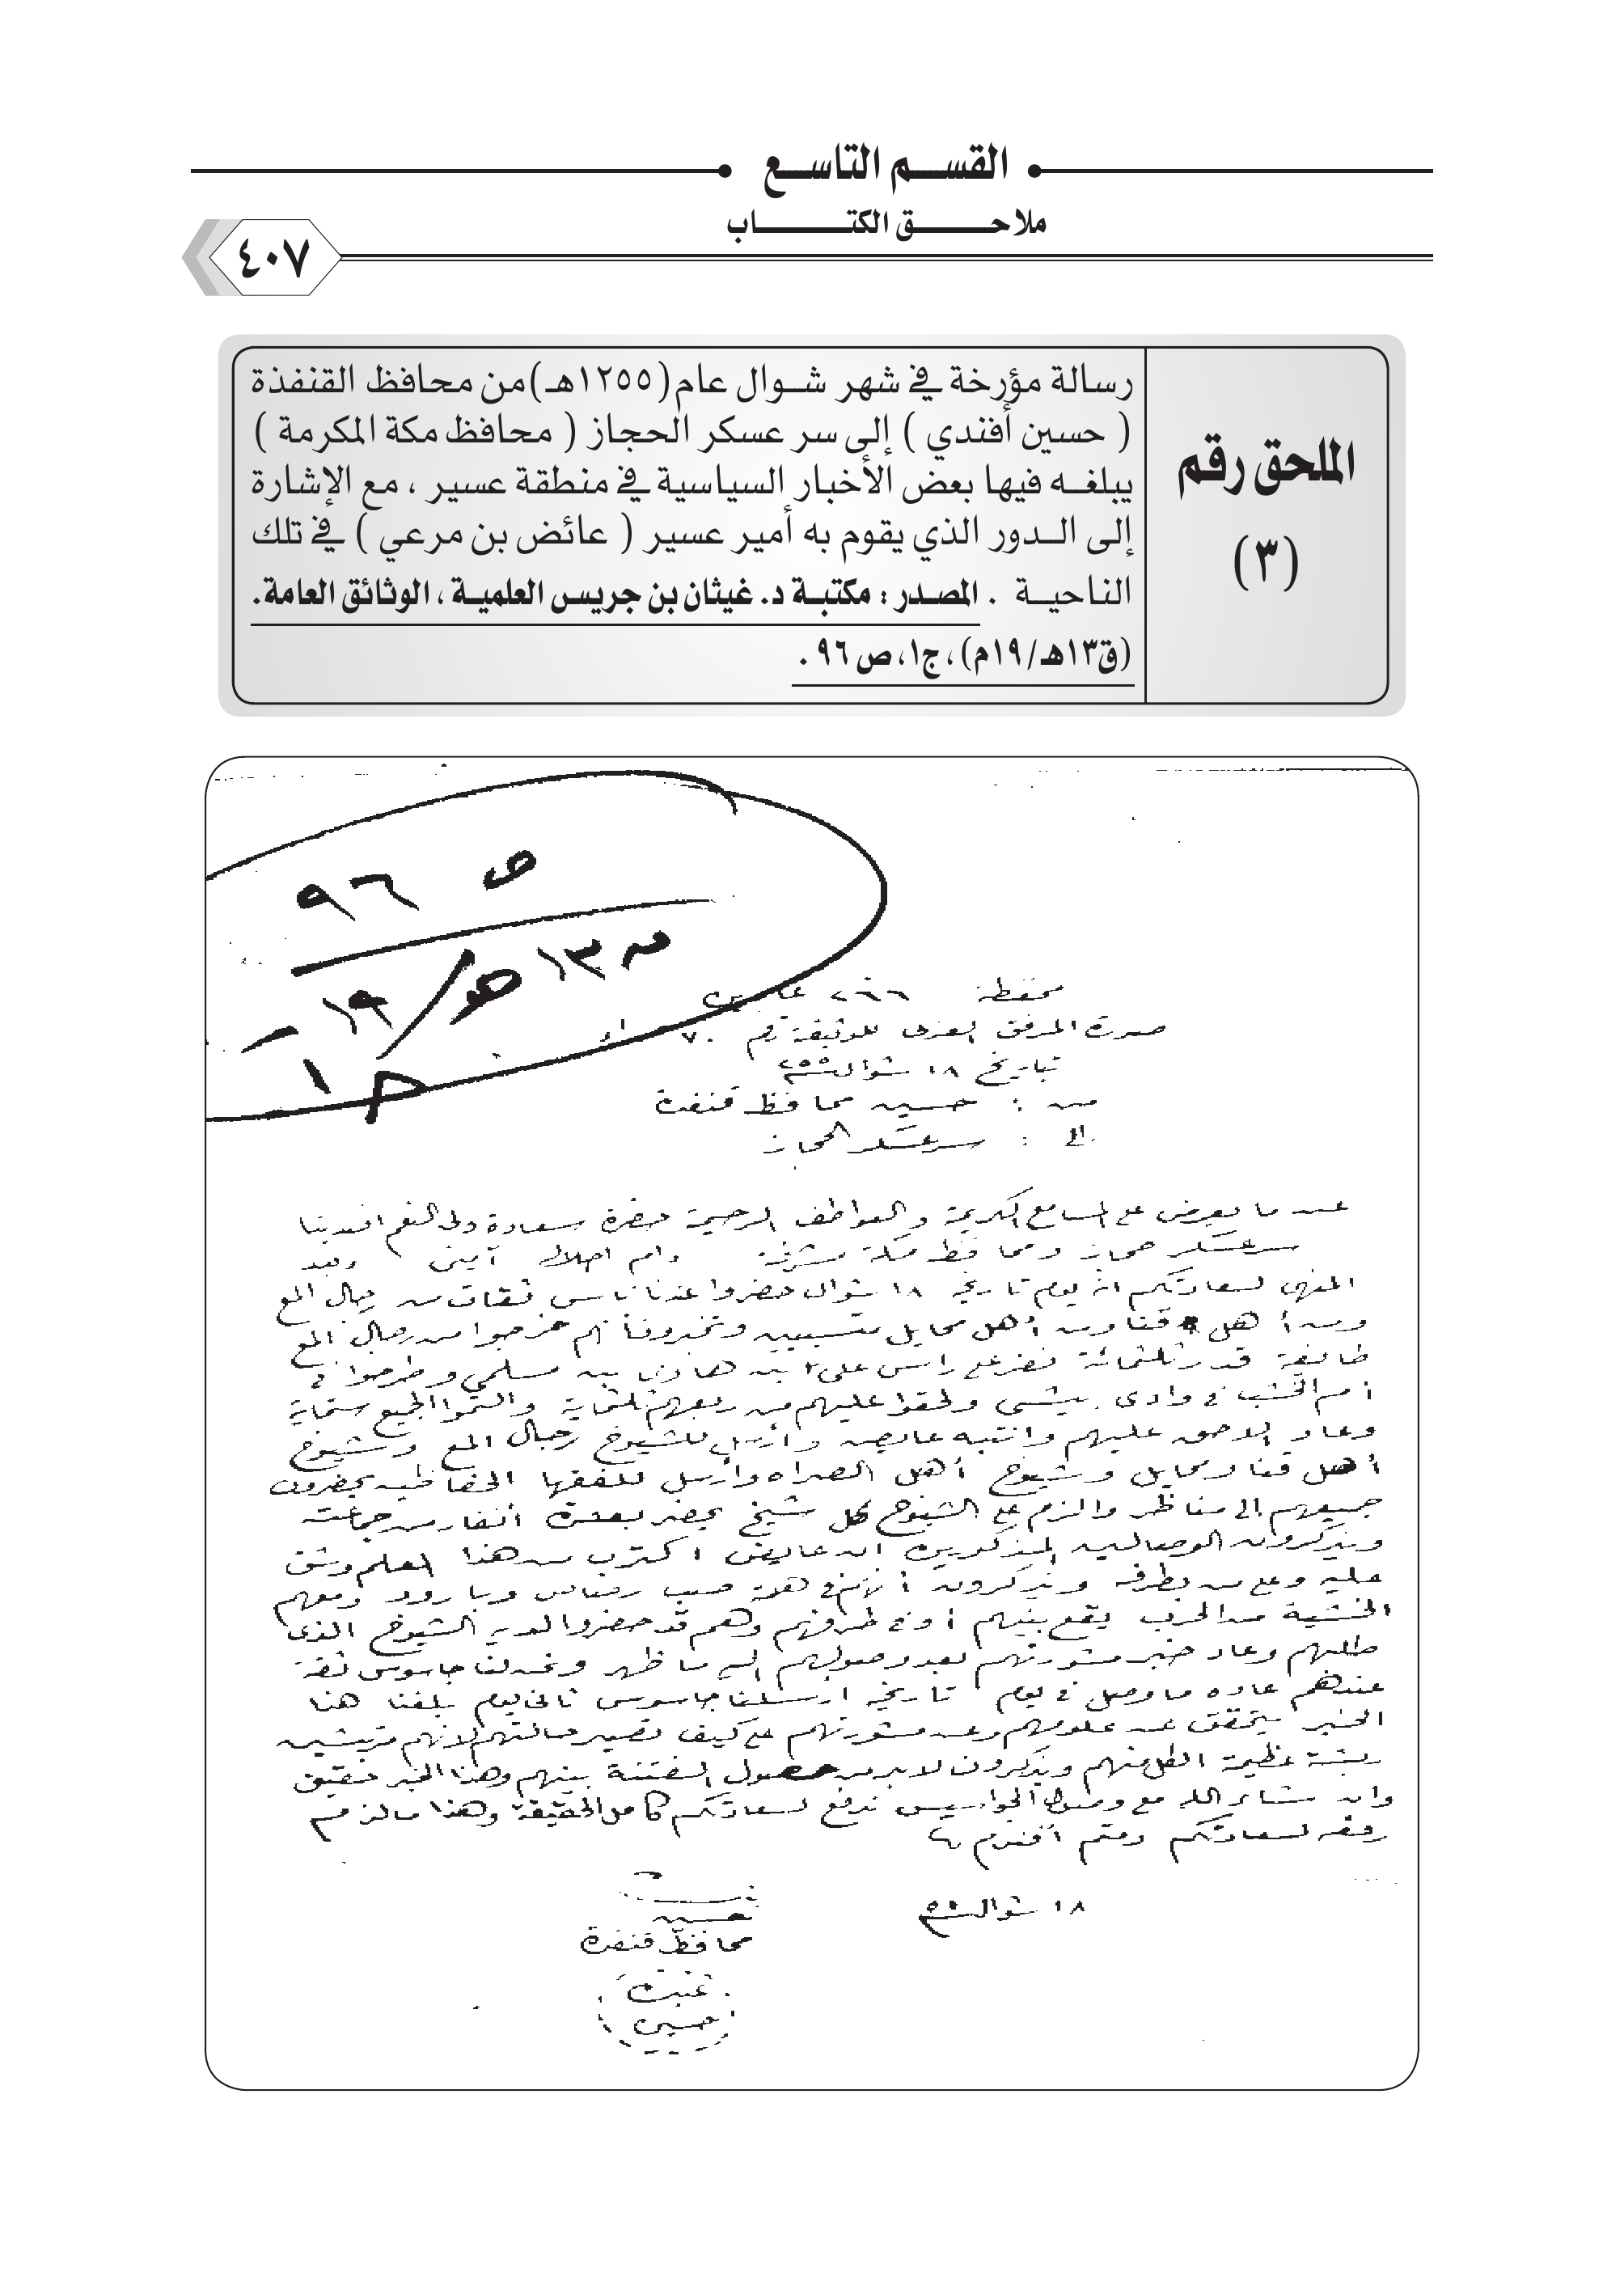 القسم التاسع
ملاحق الكتاب
٤٠٧
الملحق رقم
(٣)
رسالة مؤرخة في شهر شوال عام (١٢٥٥هـ) من محافظ القنفذة
( حسين أفندي ) إلى سر عسكر الحجاز ( محافظ مكة المكرمة )
يبلغه فيها بعض الأخبار السياسية في منطقة عسير ، مع الإشارة
إلى الدور الذي يقوم به أمير عسير ( عائض بن مرعي ) في تلك
الناحية . المصدر : مكتبة د. غيثان بن جريس العلمية ، الوثائق العامة.
(ق١٣هـ/١٩م) ، ج١، ص٩٦ .
ص ٩٦
١٣هـ/١٩
ج ١
محفظة ٢٦٦ عابدين
صورة المرفق العربى للوثيقة رقم ٧٠
بتاريخ ١٨ شوال سنة ٢٥٥
من : حسين محافظ قنفدة
الى : سرعسكر الحجاز
عند ما يعرض على المسامع الكريمة والعواطف الرحيمة حضرة سعادة ولى النعم افندينا
سرعسكر حجاز ومحافظ مكة مشرفة دام اجلاله آمين وبعد
المنهى لسعادتكم انه يوم تاريخه ١٨ شوال حضروا عندنا ناس ثقات من رجال المع
ومن أهل قنا ومن أهل محايل متسببين وتخبرونا انهم خرجوا من رجال المع
طايفة قدر ثلثمائة نفر على راس على بن هادى بن مسلمي وطرحوا في
أم الخشب في وادى بيش ولحقوا عليهم من ربعهم ثلثماية والتموا الجميع ستماية
وعاد اللاحق عليهم وانتبه عايض وأرسل للشيوخ رجال المع وشيوخ
أهل قنا ومحايل وشيوخ أهل السراه وأرسل للفقها الحفاظيه يحضرون
جميعهم الى مناظر والزم على الشيوخ كل شيخ يحضر بعشرة أنفار من جماعته
ويذكرون الوصالين المذكورين ان عايض اكترب من هذا العلم وشق
عليه وعلى من بطرفه ويذكرون أنهم في همة صب رصاص وبارود ومعهم
الخشية من الحرب يقع بينهم أو في طرفهم وهم قد حضروا لديه الشيوخ الذى
طلبهم وعاد خبر مشورتهم بعد وصولهم اليه ما ظهر ونحن لنا جاسوس ثقة
عندهم عاده ما وصل في يوم تاريخه ارسلنا جاسوس ثانى يوم بلغنا هذا
الخبر يتحقق عن علومهم وعن مشورتهم على كيف تصير حالتهم لانهم مرتبشين
ربشة عظيمة الكل منهم ويذكرون لابد من حصول الفتنة بينهم وهذا الخبر حقيق
وان شاء الله مع وصول الجواسيس نرفع لسعادتكم كامل الحقيقة وهذا ما لزم
رفعه لسعادتكم ودمتم أفندم
١٨ شوال سنة ٢٥٥
حسين
محافظ قنفدة
حسين